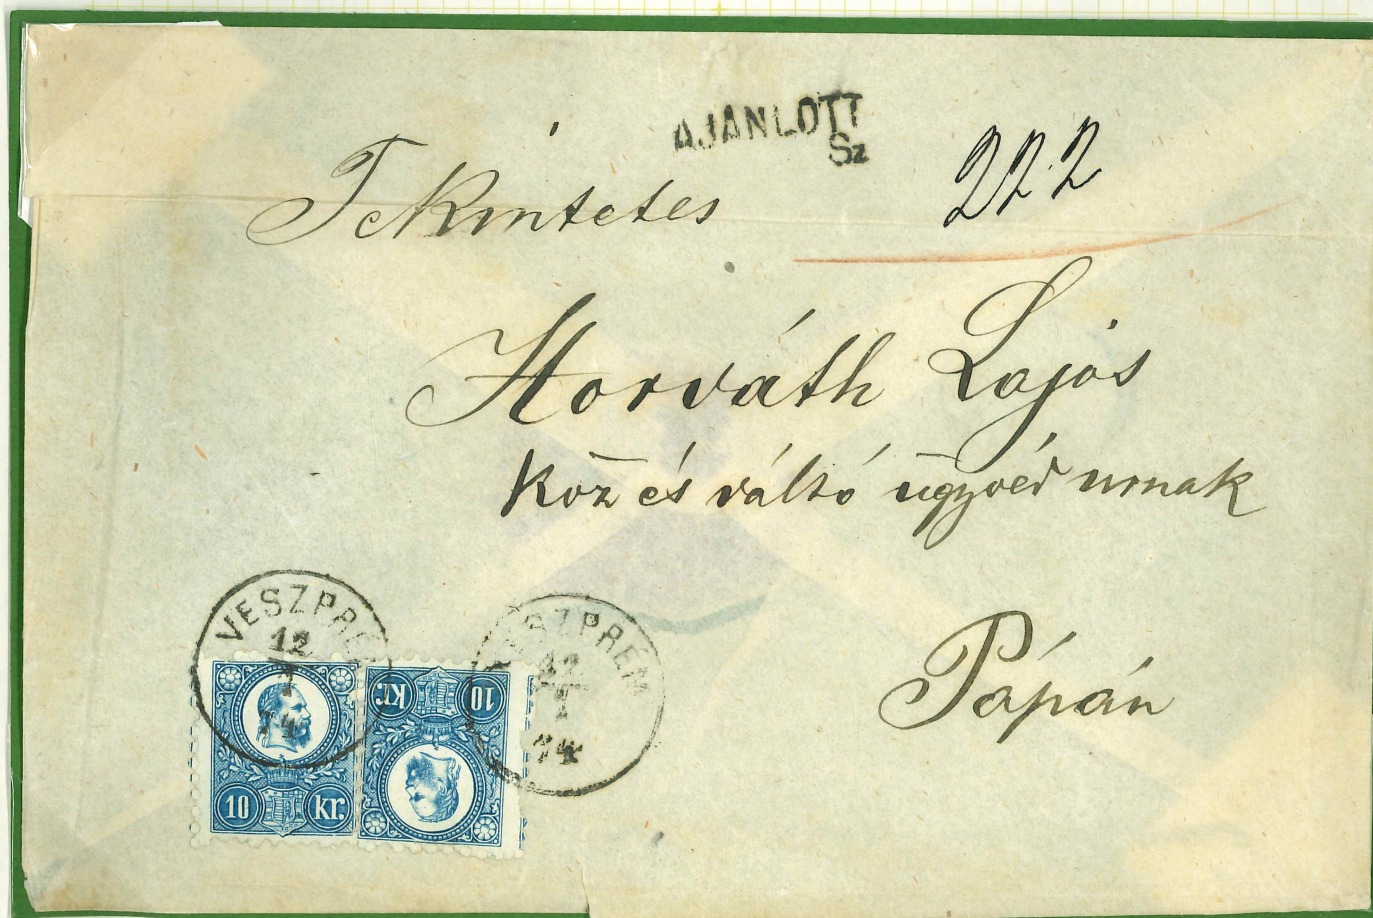 AJÁNLOTT
Sz
222
Tekintetes
Horváth Lajos
Köz és váltó ügyvéd urnak
Pápán
VESZPRÉM
12
7
74
VESZPRÉM
12
7
74
10 kr.
10 kr.